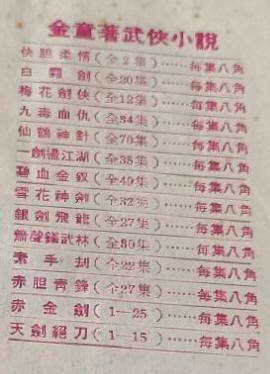 金童著武俠小說
俠胆柔情(全2集)……每集八角
白霜劍(全20集)……每集八角
梅花劍俠(全12集)……每集八角
九毒血仇(全84集)……每集八角
仙鶴神針(全70集)……每集八角
一劍盪江湖(全38集)……每集八角
碧血金釵(全49集)……每集八角
雪花神劍(全32集)……每集八角
銀劍飛龍(全27集)……每集八角
簫聲鎮武林(全80集)……每集八角
素手刦(全22集)……每集八角
赤胆青鋒(全27集)……每集八角
赤金劍(1—25)……每集八角
天劍絕刀(1—15)……每集八角